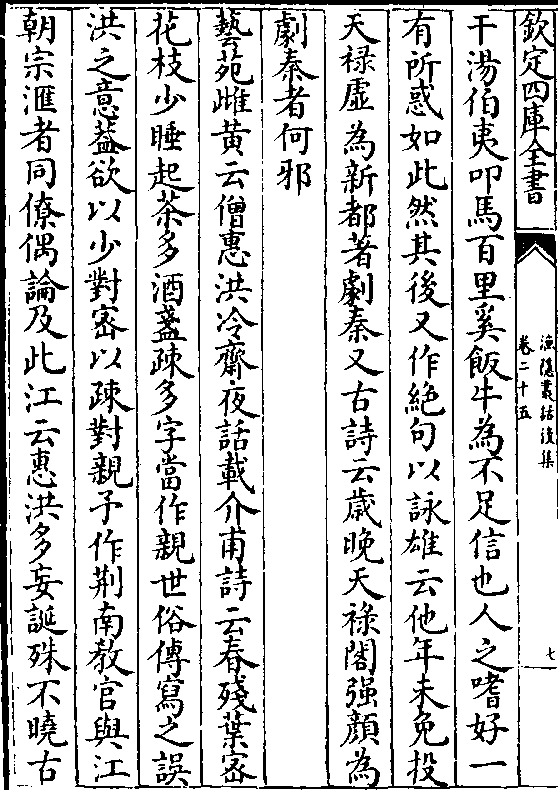 欽定四庫全書
漁隱叢話後集
卷二十五
七
干湯伯夷叩馬百里奚飯牛為不足信也人之嗜好一
有所惑如此然其後又作絶句以詠雄云他年未免投
天禄虛為新都著劇秦又古詩云歳晚天禄閣强顔為
劇秦者何邪
藝苑雌黄云僧惠洪冷齋夜話載介甫詩云春殘葉宻
花枝少睡起茶多酒盞疎多字當作親世俗傳寫之誤
洪之意葢欲以少對宻以疎對親予作荆南教官與江
朝宗滙者同僚偶論及此江云惠洪多妄誕殊不曉古